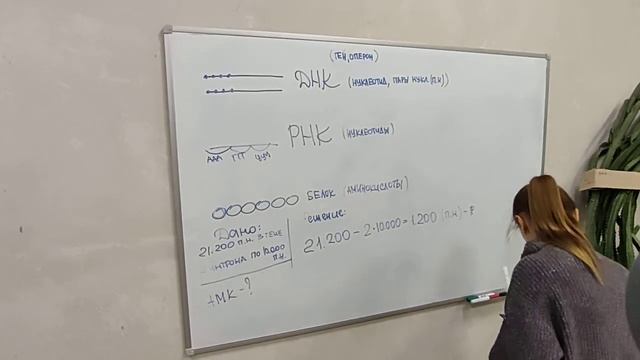 (ГЕН, ОПЕРОН)
ДНК (НУКЛЕОТИД, ПАРЫ НУКЛ. (П.Н))
РНК (НУКЛЕОТИДЫ)
ААА ГГГ
БЕЛОК (АМИНОКИСЛОТЫ)
Дано:
21.200 П.Н. В ГЕНЕ
ИНТРОНА ПО 10.000
П.Н.
МК - ?
ешение:
21.200 - 2·10.000 = 1.200 (П.Н) -